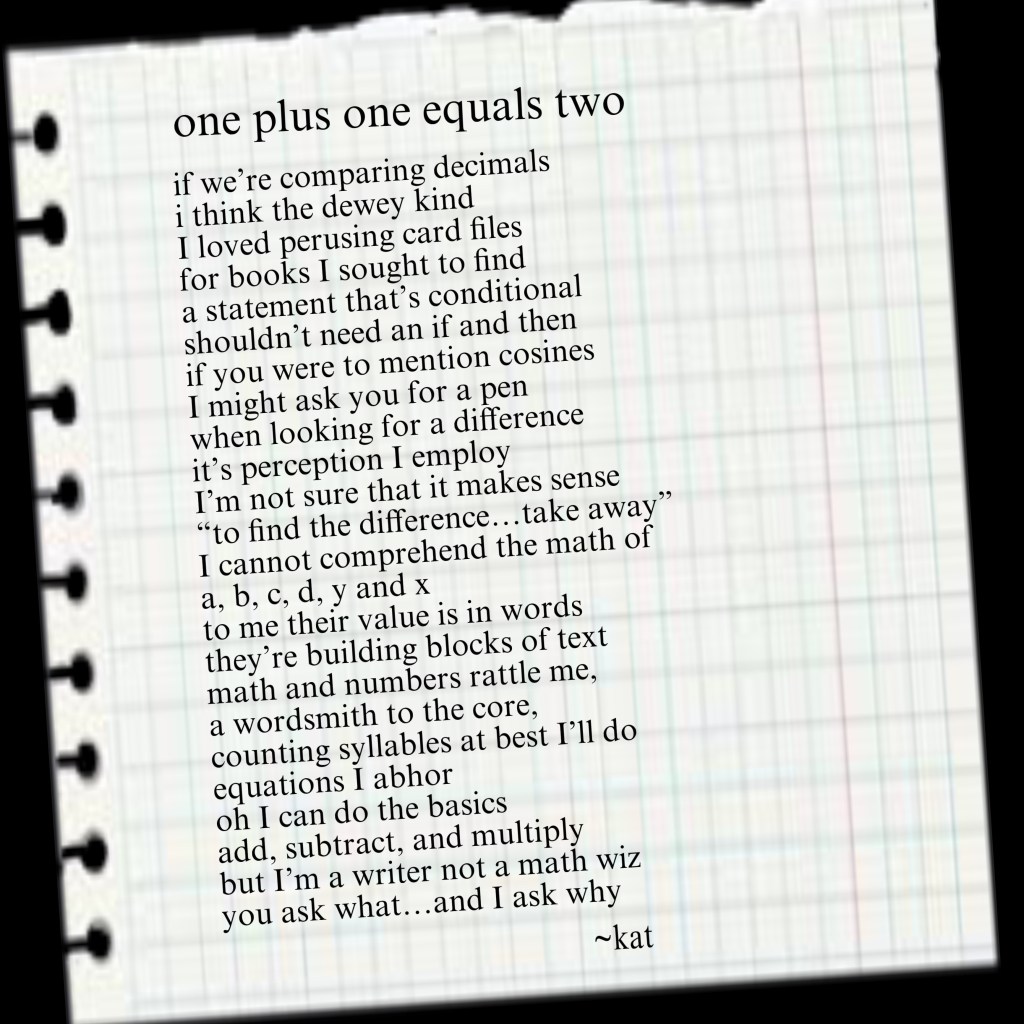 one plus one equals two
if we’re comparing decimals
i think the dewey kind
I loved perusing card files
for books I sought to find
a statement that’s conditional
shouldn’t need an if and then
if you were to mention cosines
I might ask you for a pen
when looking for a difference
it’s perception I employ
I’m not sure that it makes sense
“to find the difference...take away”
I cannot comprehend the math of
a, b, c, d, y and x
to me their value is in words
they’re building blocks of text
math and numbers rattle me,
a wordsmith to the core,
counting syllables at best I’ll do
equations I abhor
oh I can do the basics
add, subtract, and multiply
but I’m a writer not a math wiz
you ask what...and I ask why
~kat